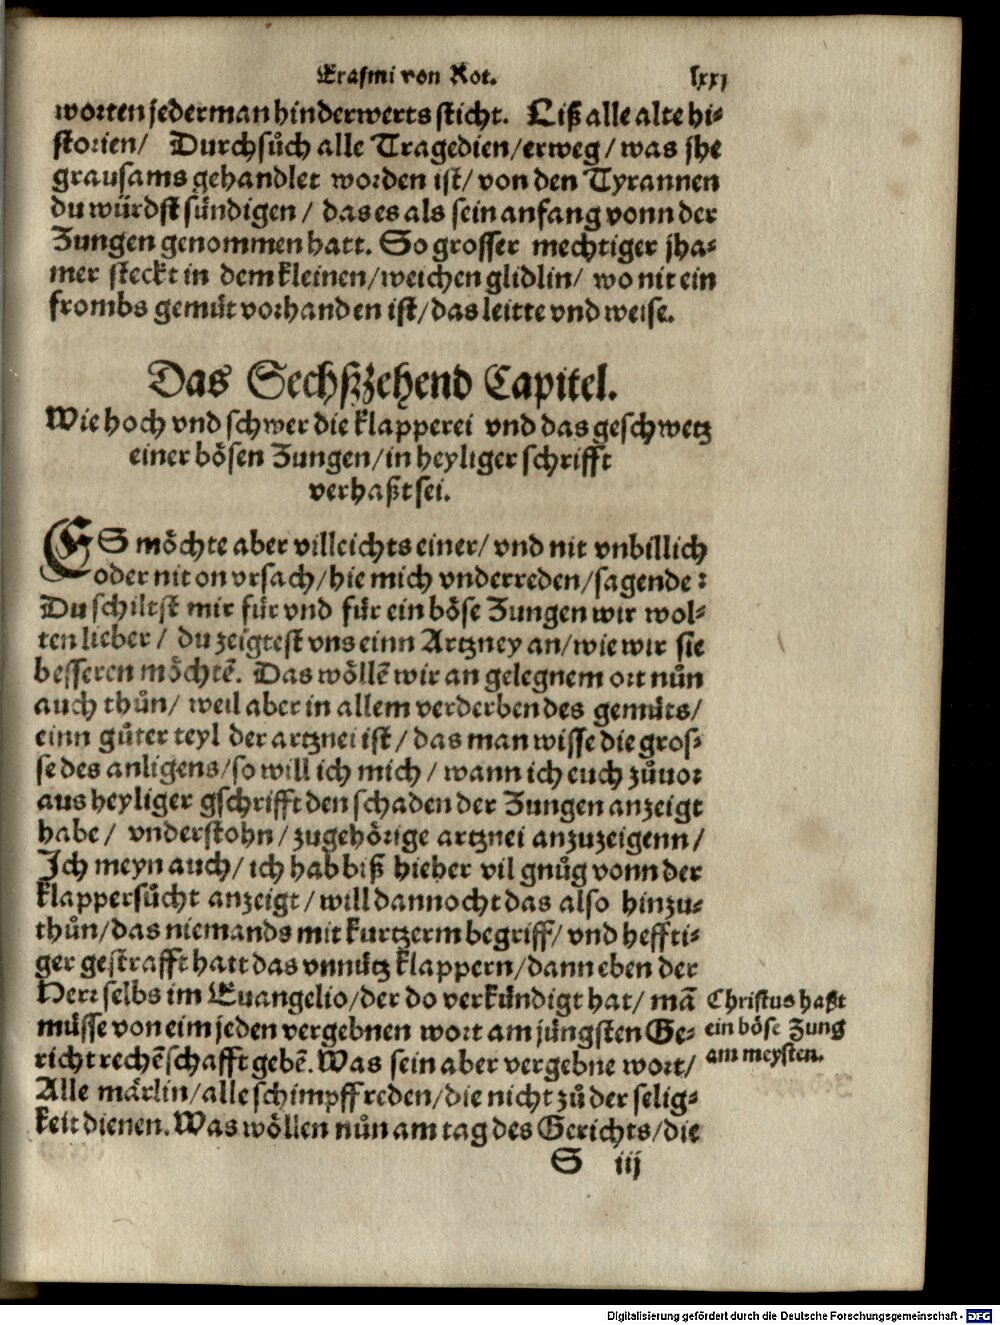 Erasmi von Rot. lxxj
worten jederman hinderwerts sticht. Liß alle alte hi⸗
storien/ Durchsůch alle Tragedien/erweg/was jhe
grausams gehandlet worden ist/von den Tyrannen
du würdst fündigen/ das es als sein anfang vonn der
Zungen genommen hatt. So grosser mechtiger jha⸗
mer steckt in dem kleinen/weichen glidlin/ wo nit ein
frombs gemüt vorhanden ist/das leitte vnd weise.
Das Sechßzehend Capitel.
Wie hoch vnd schwer die klapperei vnd das geschwetz
einer bösen Zungen/in heyliger schrifft
verhaßt sei.
ES möchte aber villeichts einer/vnd nit vnbillich
oder nit on vrsach/hie mich vnderreden/sagende:
Du schiltst mir für vnd für ein böse Zungen wir wol⸗
ten lieber/ du zeigtest vns einn Artzney an/wie wir sie
besseren möchtē. Das wöllē wir an gelegnem ort nůn
auch thůn/ weil aber in allem verderben des gemüts/
einn gůter teyl der artznei ist/das man wisse die gros⸗
se des anligens/so will ich mich/wann ich euch zůuor
aus heyliger gschrifft den schaden der Zungen anzeigt
habe/ vnderstohn/zugehörige artznei anzuzeigenn/
Ich meyn auch/ich hab biß hieher vil gnůg vonn der
klappersücht anzeigt/will dannocht das also hinzu⸗
thůn/das niemands mit kurtzerm begriff/vnd heffti⸗
ger gestrafft hatt das vnnütz klappern/dann eben der
Herr selbs im Euangelio/der do verkündigt hat/ mā
müsse von eim jeden vergebnen wort am jüngsten Ge⸗
richt rechēschafft gebē. Was sein aber vergebne wort/
Alle märlin/alle schimpffreden/die nicht zů der selig⸗
keit dienen. Was wöllen nůn am tag des Gerichts/die
Christus haßt
ein böse Zung
am meysten.
S iij
Digitalisierung gefördert durch die Deutsche Forschungsgemeinschaft - DFG